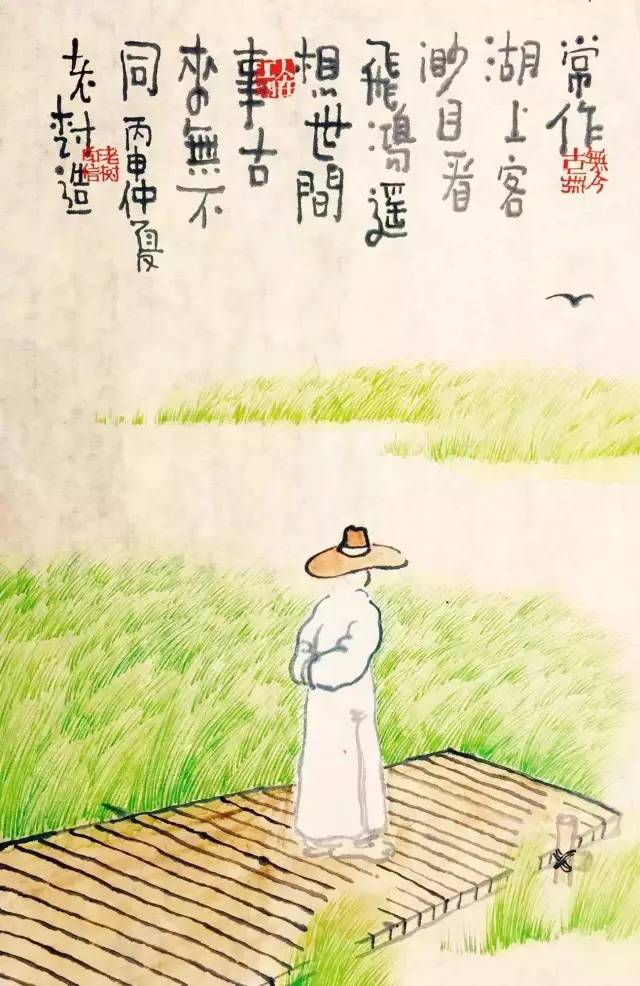 常作
湖上客
渺目看
飛鴻遥
想世間
事古
来無不
同 丙申仲夏
老树造
無今無古
老树印信